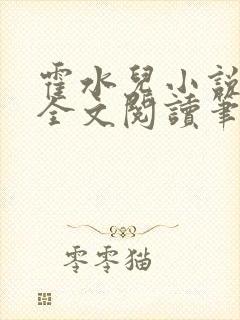 霍水兒小說
全文閱讀筆
零零猫